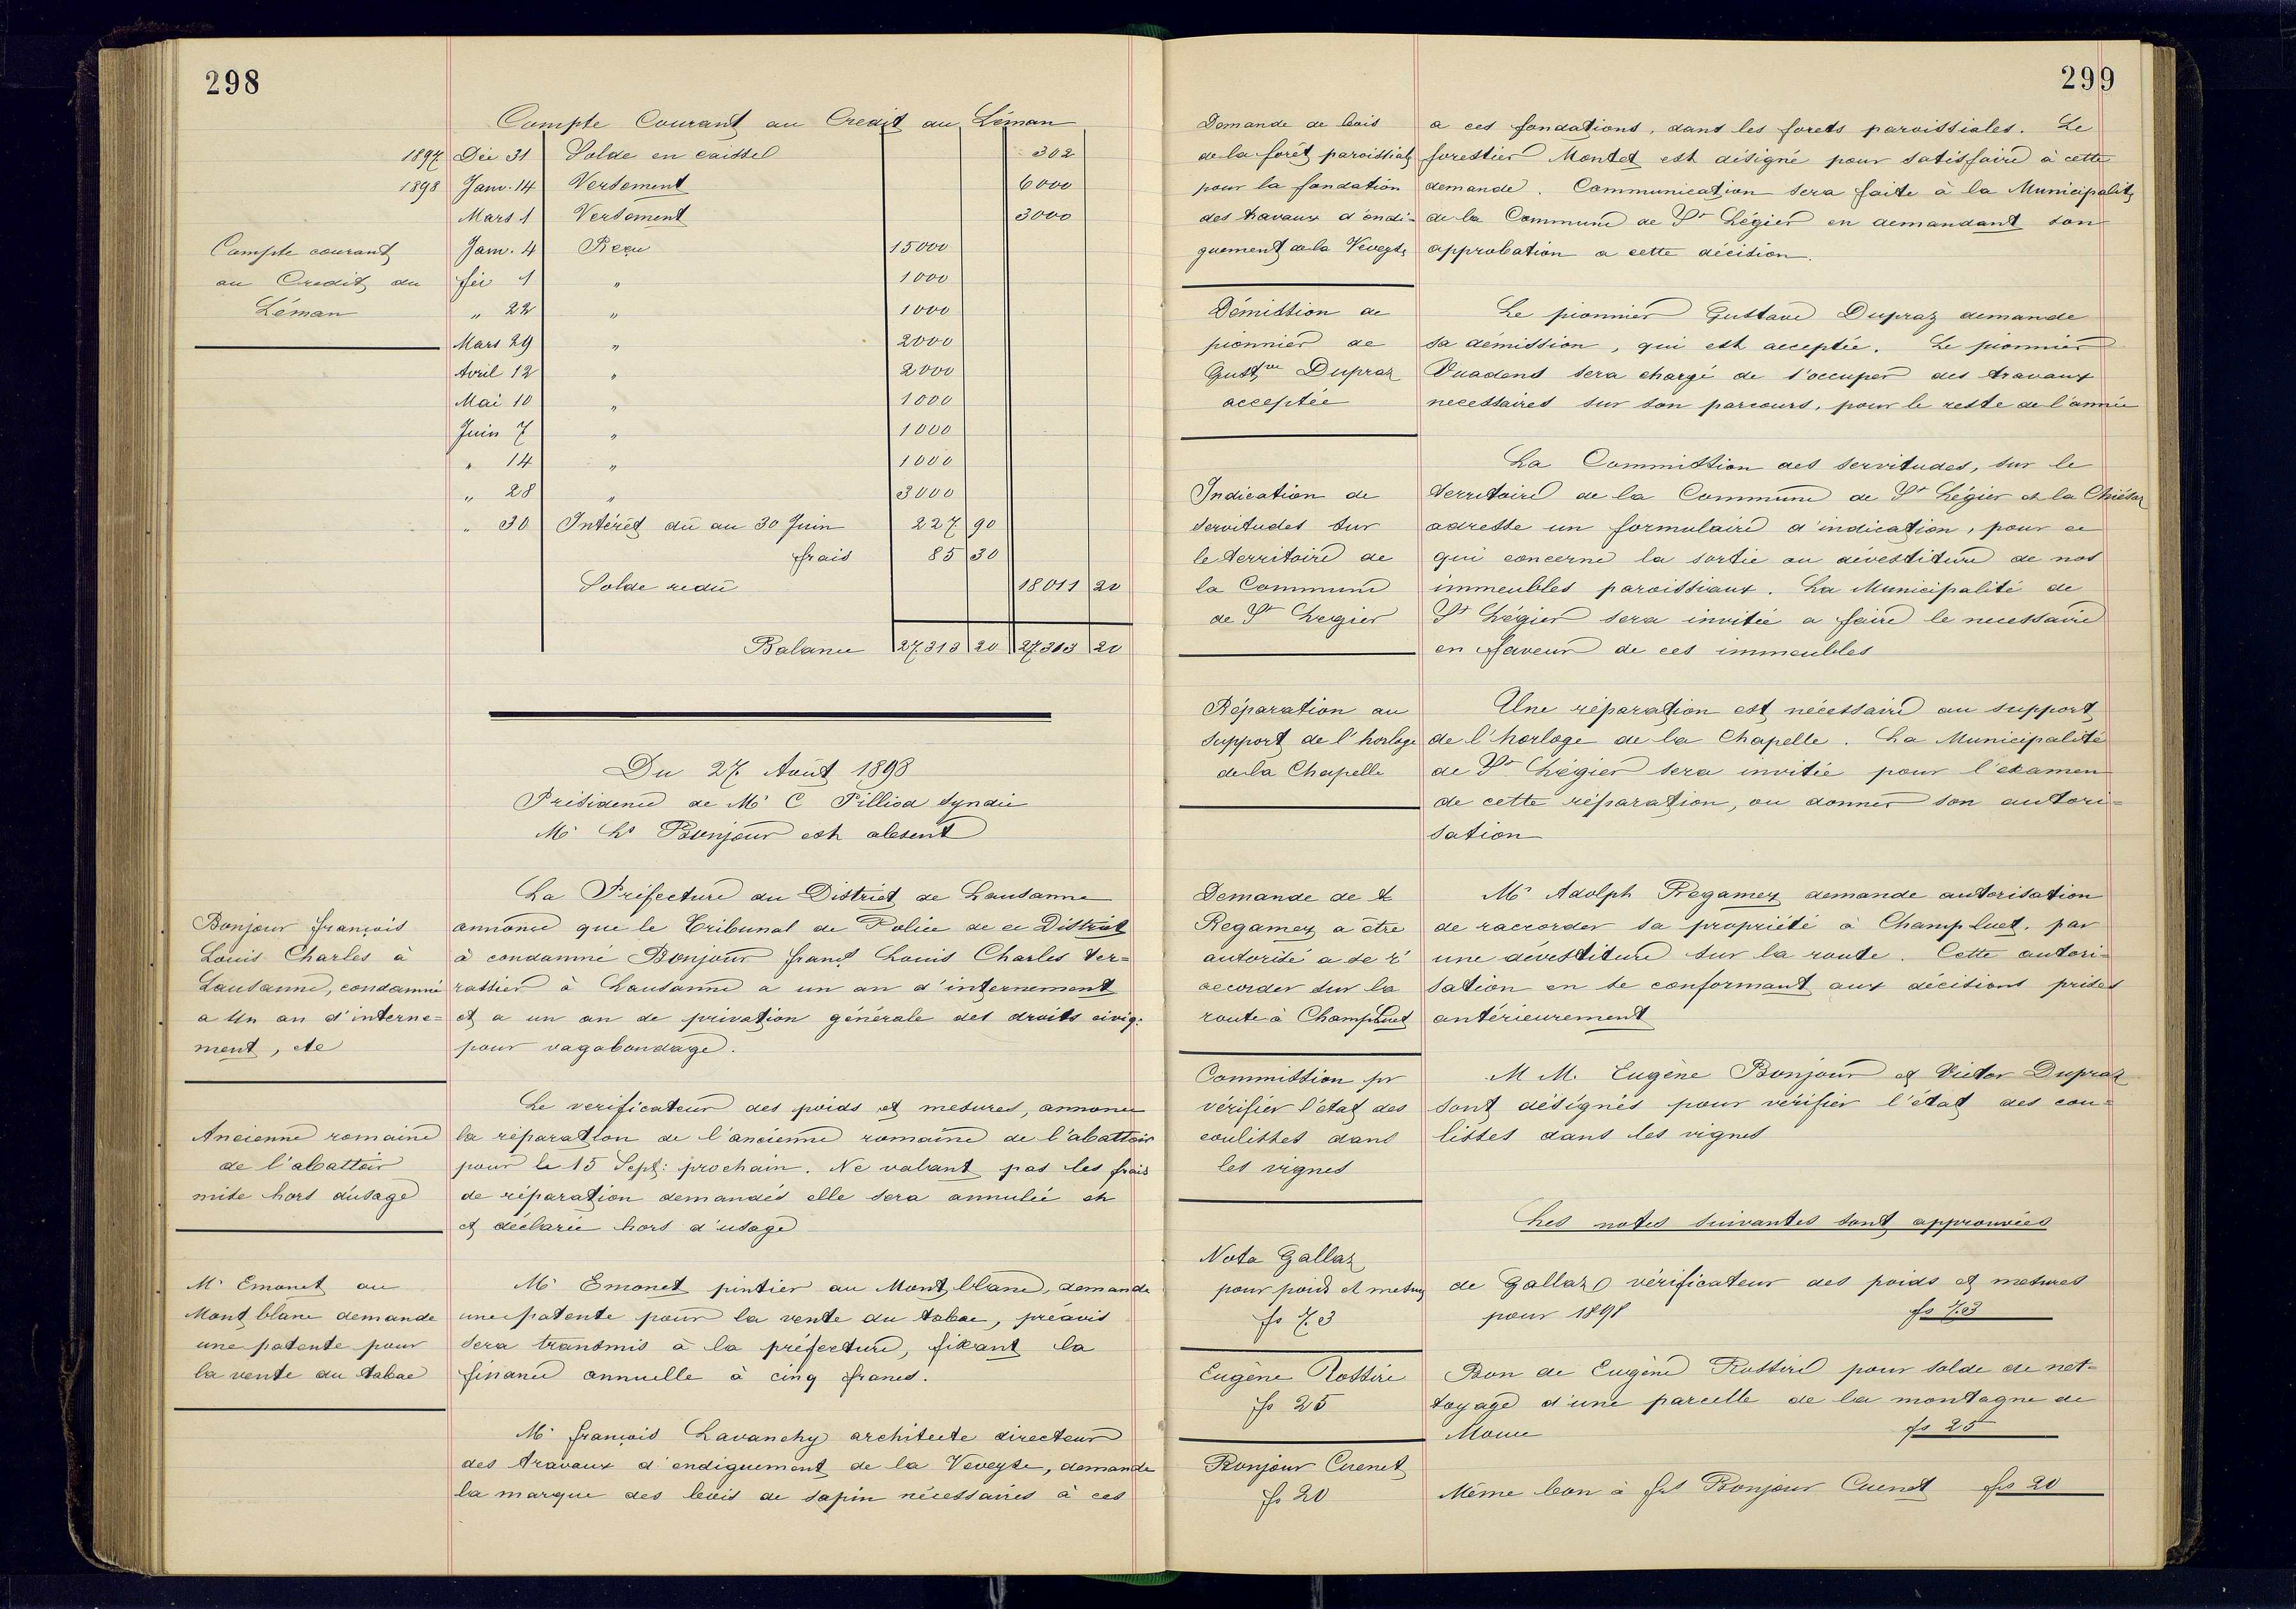 298
Compte Courant au Credit du Léman
1897 Déc 31 Solde en caisse 302
1898 Janv. 14 Versement 6000
Mars 1 Versement 3000
Compte courant
au Credit du
Léman
Janv. 4 Reçu 15000
fév 1 " 1000
" 22 " 1000
Mars 29 " 2000
Avril 12 " 2000
Mai 10 " 1000
Juin 7 " 1000
" 14 " 1000
" 28 " 3000
" 30 Intérêt dû au 30 Juin 227 90
frais 85 30
Solde redû 18011 20
Balance 27313 20 27313 20
Du 27 Août 1898
Présidence de Mr C Pilliod Syndic
Mr Ls Bonjour est absent
Bonjour françois
Louis Charles à
Lausanne, condamné
a Un an d'interne=
ment, etc
La Préfecture du District de Lausanne
annonce que le Tribunal de Police de ce District
à condamné Bonjour franç Louis Charles Ter=
rassier à Lausanne a un an d'internement
et a un an de privation générale des droits civiq:
pour vagabondage.
Ancienne romaine
de l'abattoir
mise hors d'usage
Le verificateur des poids et mesures, annonce
la réparation de l'ancienne romaine de l'abattoir
pour le 15 Sept: prochain. Ne valant pas les frais
de réparation demandés elle sera annulée et
et déclarée hors d'usage
Mr Emonet au
Mont blanc demande
une patente pour
la vente du tabac
Mr Emonet pintier au Mont blanc, demande
une patente pour la vente du tabac, préavis
sera transmis à la préfecture, fixant la
finance annuelle à cinq francs.
Mr françois Lavanchy architecte directeur
des travaux d'endiguement de la Veveyse, demande
la marque des bois de sapin nécessaires à ces
299
Demande de bois
de la forêt paroissiale
pour la fondation
des travaux d'endi=
guement de la Veveyse
a ces fondations, dans les forets paroissiales. Le
forestier Montet est désigné pour satisfaire à cette
demande. Communication sera faite à la Municipalité
de la Commune de St Légier en demandant son
approbation a cette décision.
Démission de
pionnier de
Gustve Dupraz
acceptée
Le pionnier Gustave Dupraz demande
sa démission, qui est acceptée. Le pionnier
Vuadens sera chargé de s'occuper des travaux
necessaires sur son parcours, pour le reste de l'année
Indication de
servitudes sur
le territoire de
la Commune
de St Legier
La Commission des servitudes, sur le
territoire de la Commune de St Légier et la Chiésaz
adresse un formulaire d'indication, pour ce
qui concerne la sortie ou dévestiture de nos
immeubles paroissiaux. La Municipalité de
St Légier sera invitée a faire le necessaire
en faveur de ces immeubles
Réparation au
support de l'horloge
de la Chapelle
Une réparation est nécessaire au support
de l'horloge de la Chapelle. La Municipalité
de St Légier sera invitée pour l'examen
de cette réparation, ou donner son autori=
sation
Demande de A
Regamey a être
autorisé a se r'
accorder sur la
route à Champ Luet
Mr Adolph Regamey demande autorisation
de raccorder sa propriété à Champ Luet, par
une dévestiture sur la route. Cette autori=
sation en se conformant aux décisions prises
antérieurement
Commission pr
vérifier l'état des
coulisses dans
les vignes
M M. Eugène Bonjour et Victor Dupraz
sont désignés pour vérifier l'état des cou=
lisses dans les vignes
Les notes suivantes sont approuvées
Nota Gallaz
pour poids et mesures
fs 7.3
de Gallaz vérificateur des poids et mesures
pour 1898 fs 7.3
Eugène Rossire
fs 25
Bon de Eugène Rossire pour solde de net=
toyage d'une parcelle de la montagne de
fs 25
Bonjour Cuenet
fs 20
Même bon à fs Bonjour Cuenet fs 20